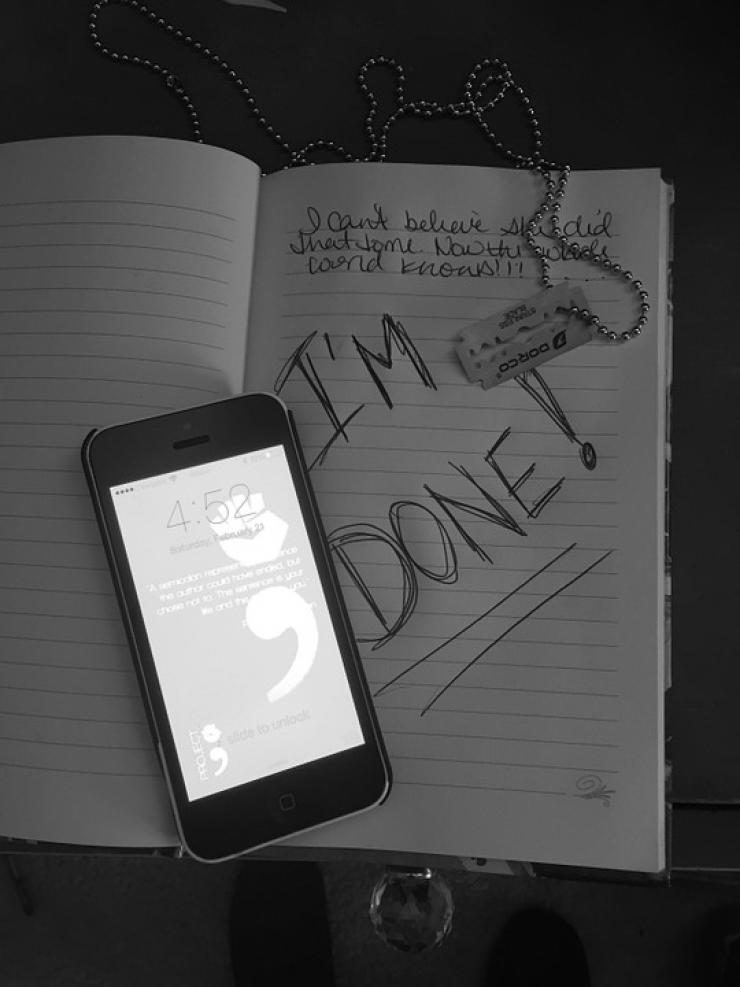 I can't believe she did
that to me. Now the whole
world knows!!!
I'M
DONE!
STAINLESS
BLADE
DORCO
4:52
Saturday, February 21
"A semicolon represents a sentence
the author could have ended, but
chose not to. The sentence is your
life and the author is you."
PROJECT
slide to unlock